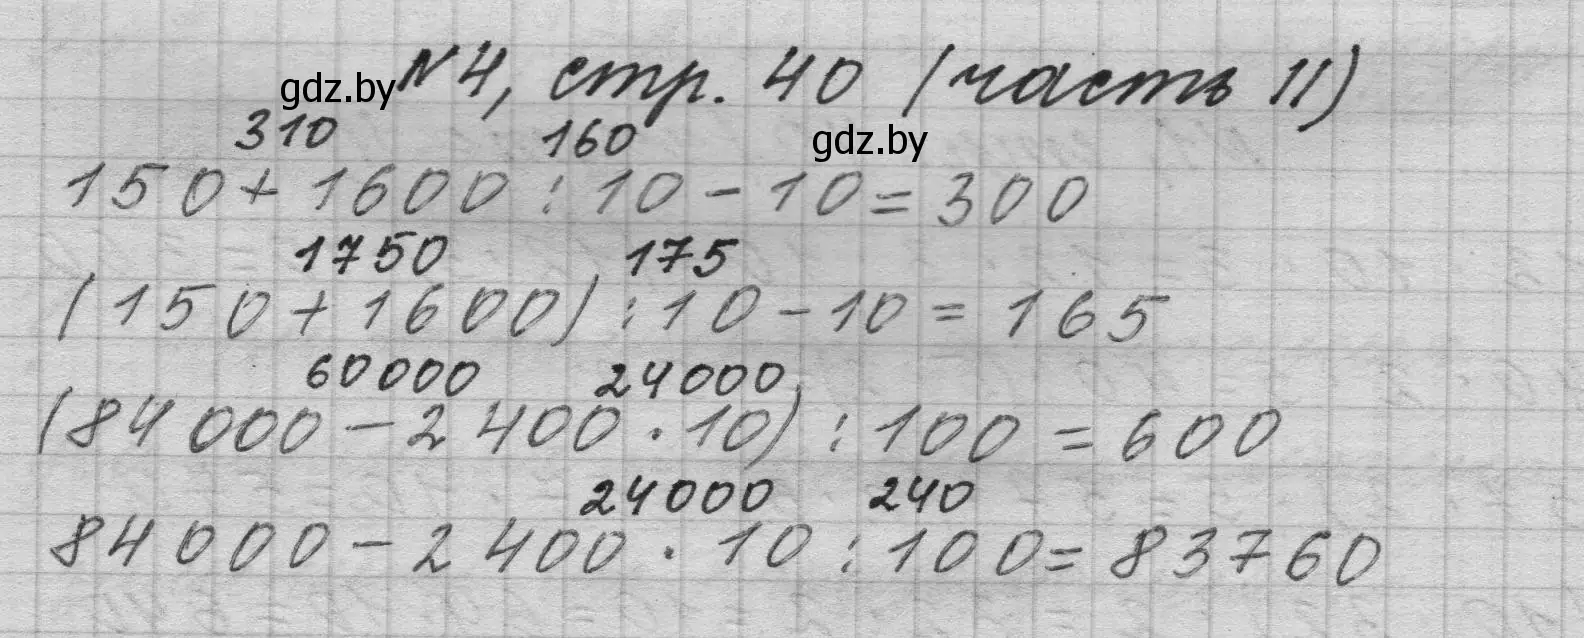 №4, стр. 40 (часть II)
gdz.by
310 160
gdz.by
150 + 1600 : 10 - 10 = 300
1750 175
(150 + 1600) : 10 - 10 = 165
60000 24000
(84000 - 2400 · 10) : 100 = 600
24000 240
84000 - 2400 · 10 : 100 = 83760